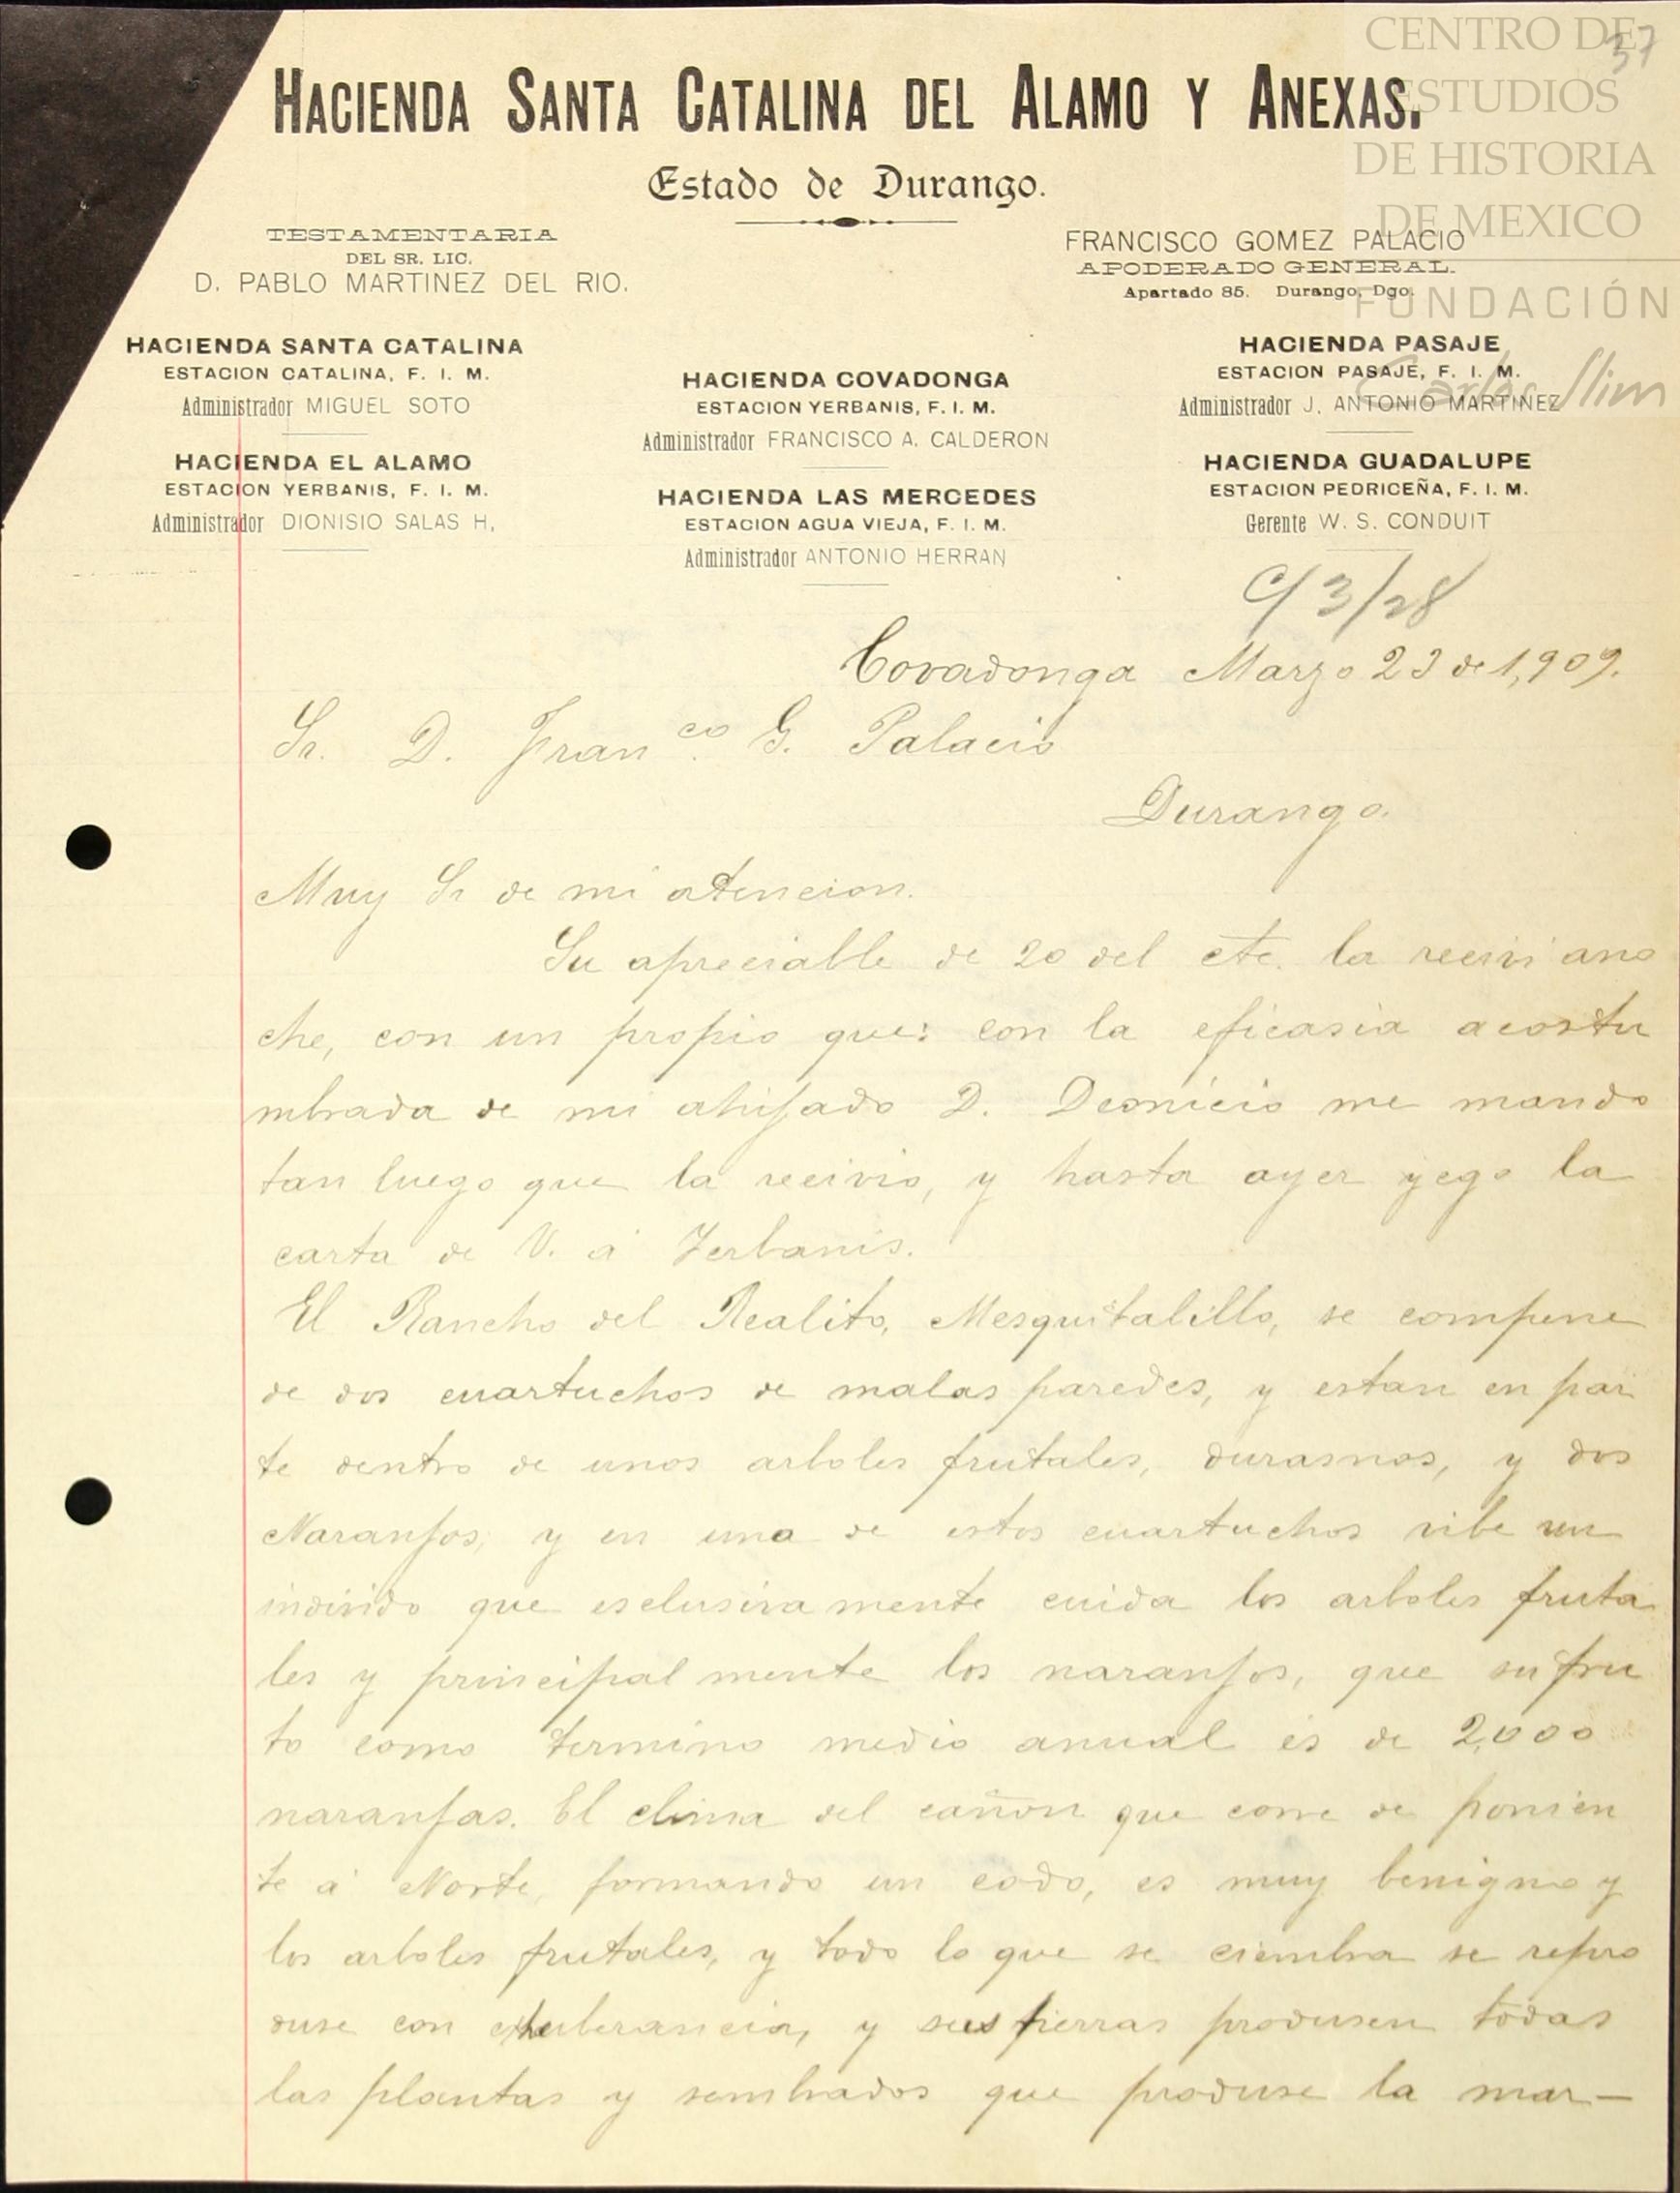 CENTRO DE
ESTUDIOS
DE HISTORIA
DE MEXICO
FUNDACIÓN
Carlos Slim
37
HACIENDA SANTA CATALINA DEL ALAMO Y ANEXAS.
Estado de Durango.
TESTAMENTARIA
DEL SR. LIC.
D. PABLO MARTINEZ DEL RIO.
FRANCISCO GOMEZ PALACIO
APODERADO GENERAL.
Apartado 85. Durango, Dgo.
HACIENDA SANTA CATALINA
ESTACION CATALINA, F. I. M.
Administrador MIGUEL SOTO
HACIENDA EL ALAMO
ESTACION YERBANIS, F. I. M.
Administrador DIONISIO SALAS H,
HACIENDA COVADONGA
ESTACION YERBANIS, F. I. M.
Administrador FRANCISCO A. CALDERON
HACIENDA LAS MERCEDES
ESTACION AGUA VIEJA, F. I. M.
Administrador ANTONIO HERRAN
HACIENDA PASAJE
ESTACION PASAJE, F. I. M.
Administrador J. ANTONIO MARTINEZ
HACIENDA GUADALUPE
ESTACION PEDRICEÑA, F. I. M.
Gerente W. S. CONDUIT
C/ 3/28
Covadonga Marzo 23 de 1,909.
Sr. D. Fran.co G. Palacio
Durango.
Muy Sr de mi atencion.
Su apreciable de 20 del cte. la recivi ano
che, con un propio que: con la eficasia acostu
mbrada de mi ahijado D. Deonicio me mando
tan luego que la recivio, y hasta ayer yego la
carta de V. á Yerbanis.
El Rancho del Realito, Mesquitalillo, se compone
de dos cuartuchos de malas paredes, y estan en par
te dentro de unos arboles frutales, durasnos, y dos
Naranjos, y en una de estos cuartuchos vibe un
individo que esclusivamente cuida los arboles fruta
les y principalmente los naranjos, que su fru
to como termino medio anual es de 2,000
naranjas. El clima del cañon que corre de ponien
te á Norte, formando un codo, es muy benigno y
los arboles frutales, y todo lo que se ciembra se repro
duse con exuberancia, y sus tierras produsen todas
las plantas y sembrados que produse la mar-